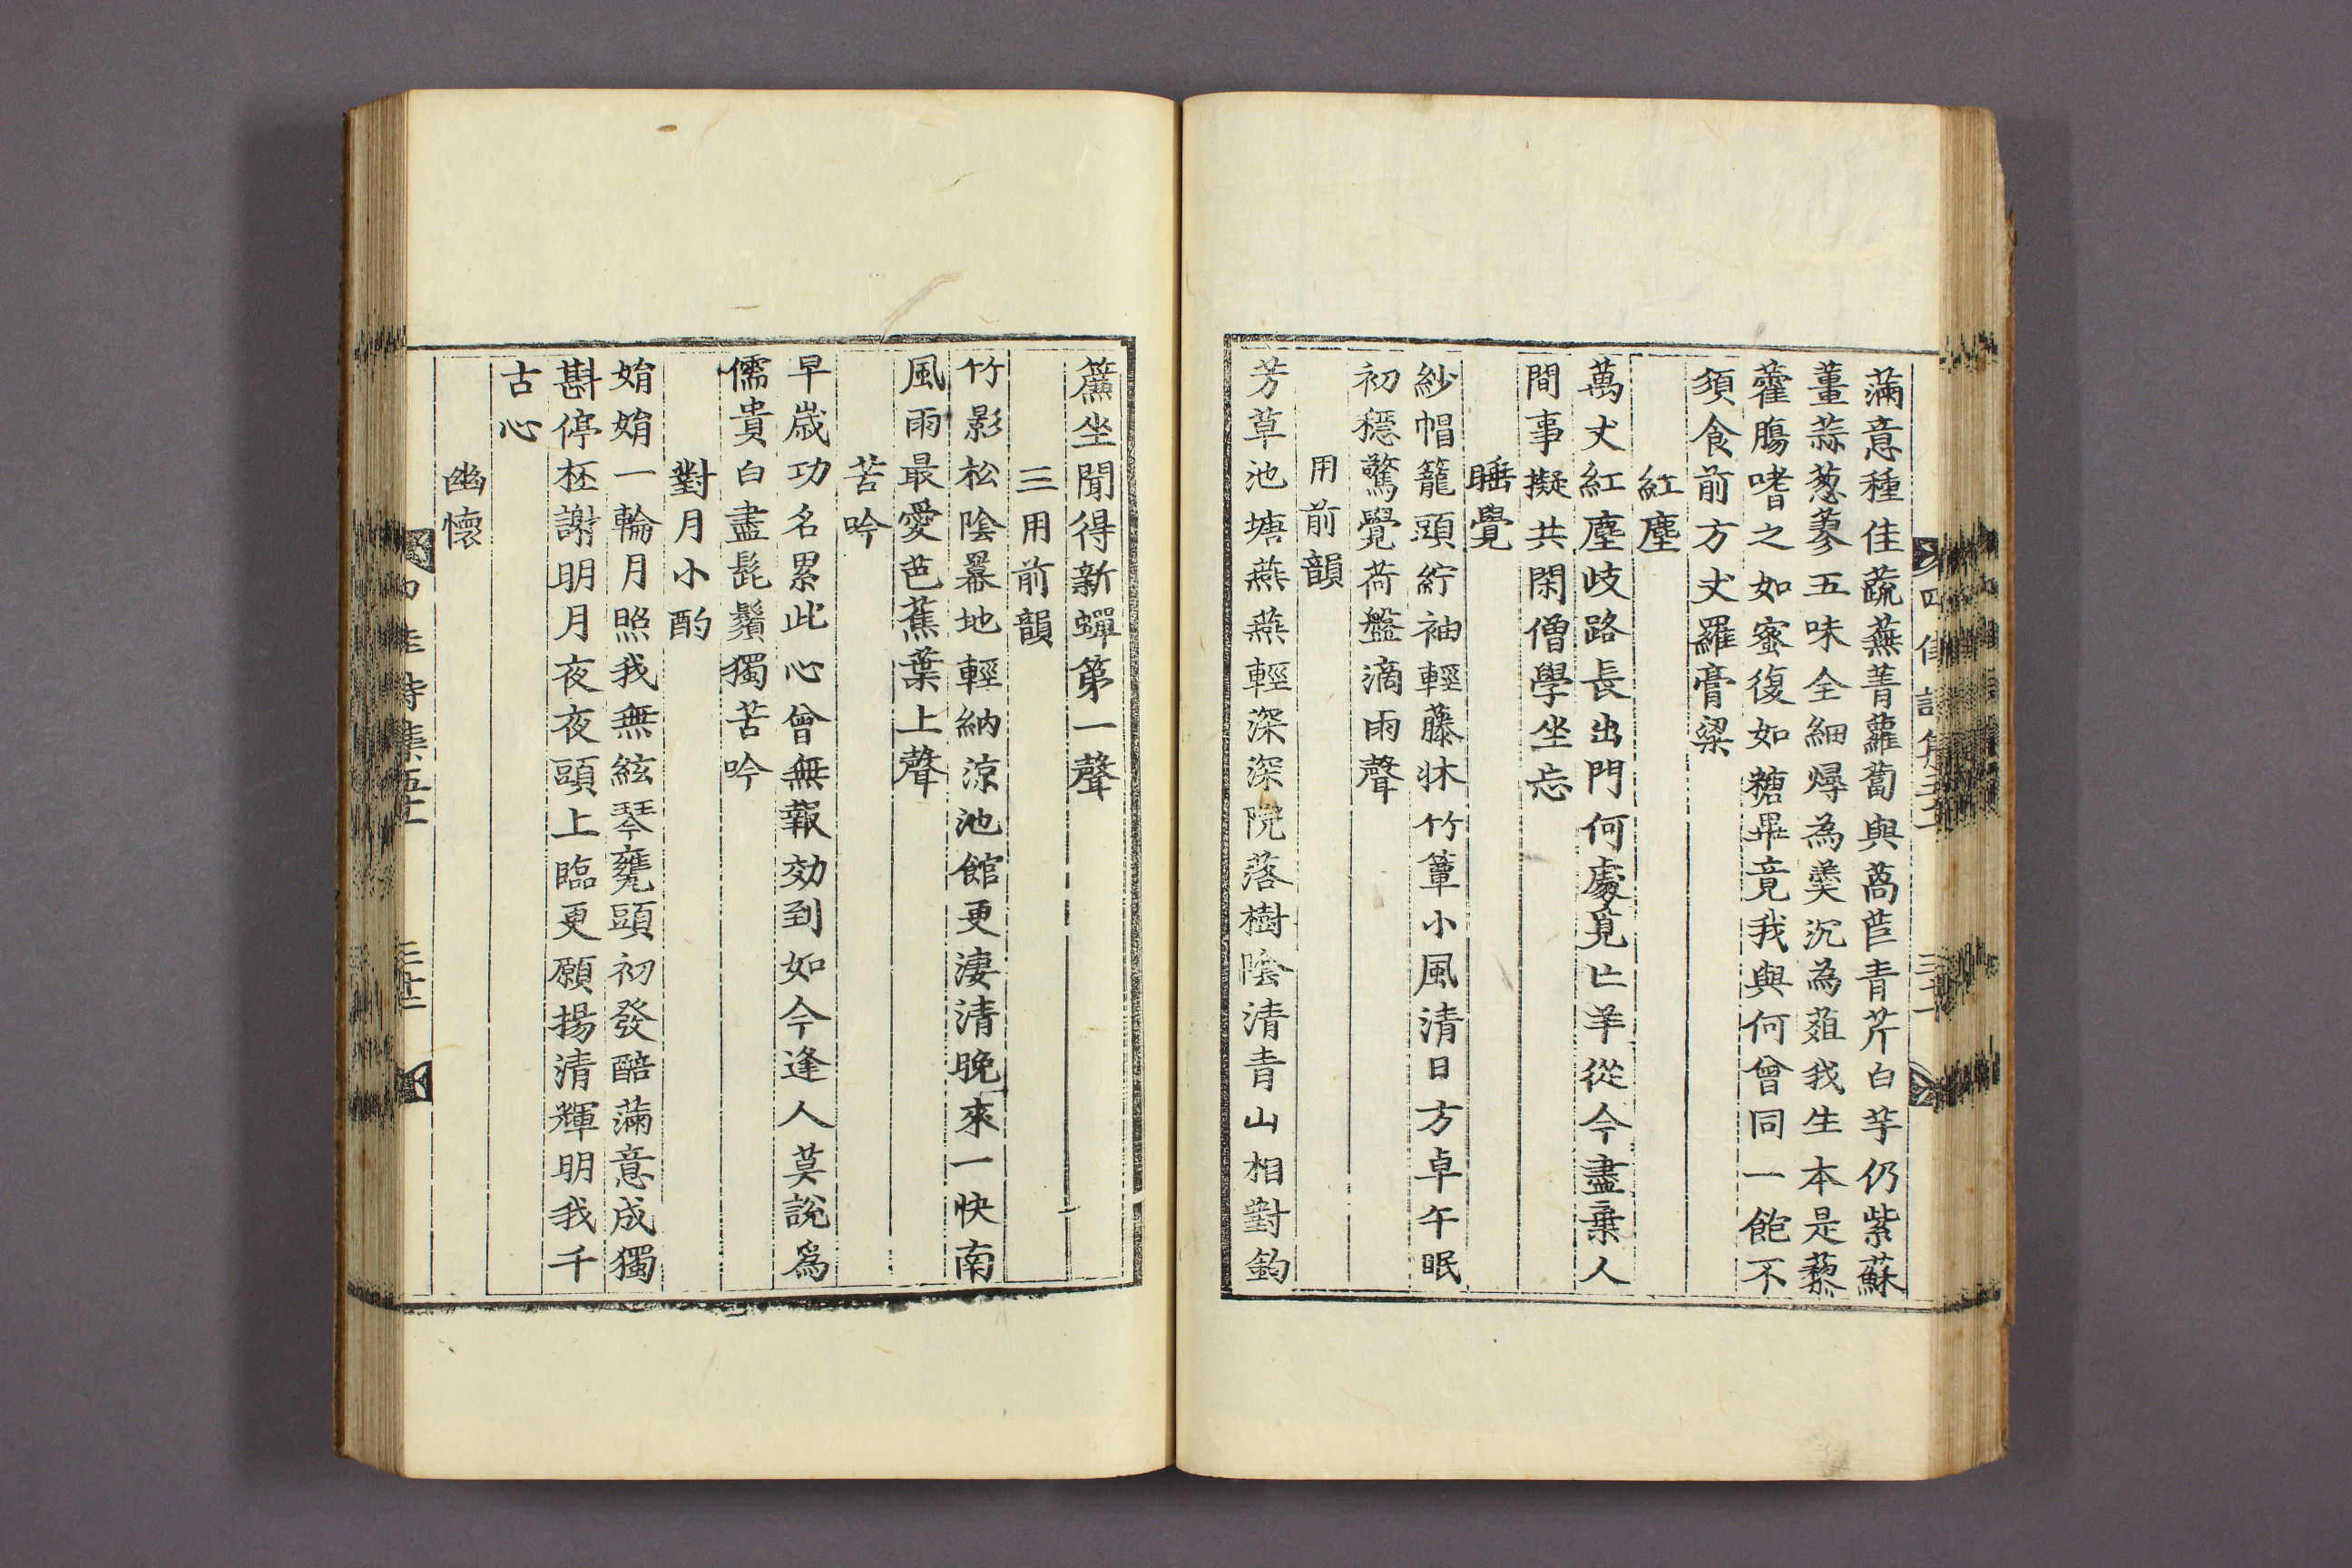 滿意種佳蔬蕪菁蘿蔔與萵苣青芹白芋仍紫蘇
薑蒜葱蓼五味全細燖為羹沉為葅我生本是藜
藿腸嗜之如蜜復如糖畢竟我與何曾同一飽不
須食前方丈羅膏粱
紅塵
萬丈紅塵歧路長出門何處覓亡羊從今盡棄人
間事擬共閑僧學坐忘
睡覺
紗帽籠頭紵袖輕藤牀竹簟小風清日方卓午眠
初穩驚覺荷盤滴雨聲
用前韻
芳草池塘燕燕輕深深院落樹陰清青山相對鉤
簾坐聞得新蟬第一聲
三用前韻
竹影松陰羃地輕納涼池館更淒清晚來一快南
風雨最愛芭蕉葉上聲
苦吟
早歲功名累此心曾無報效到如今逢人莫說爲
儒貴白盡髭鬚獨苦吟
對月小酌
娟娟一輪月照我無絃琴甕頭初發醅滿意成獨
斟停杯謝明月夜夜頭上臨更願揚清輝明我千
古心
幽懷